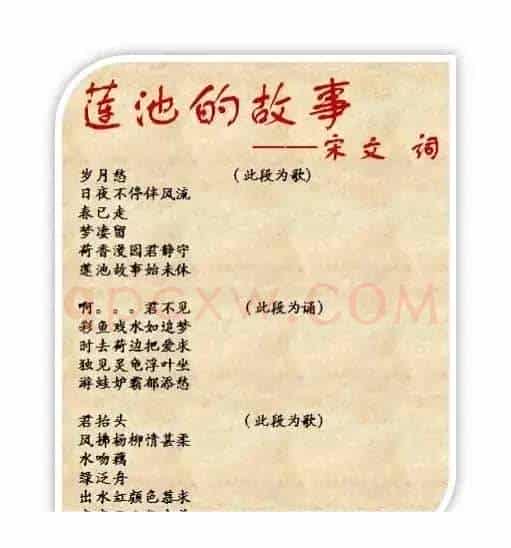 莲池的故事
——宋文 词
岁月愁 (此段为歌)
日夜不停伴风流
春已走
梦凄留
荷香漫园君静宁
莲池故事始未休
啊。...君不见 (此段为诵)
彩鱼戏水如追梦
时去荷边把爱求
独见灵龟浮叶坐
游蛙妒霸郁添愁
君抬头 (此段为歌)
风拂杨柳情甚柔
水吻藕
绿泛舟
出水红颜色慕求